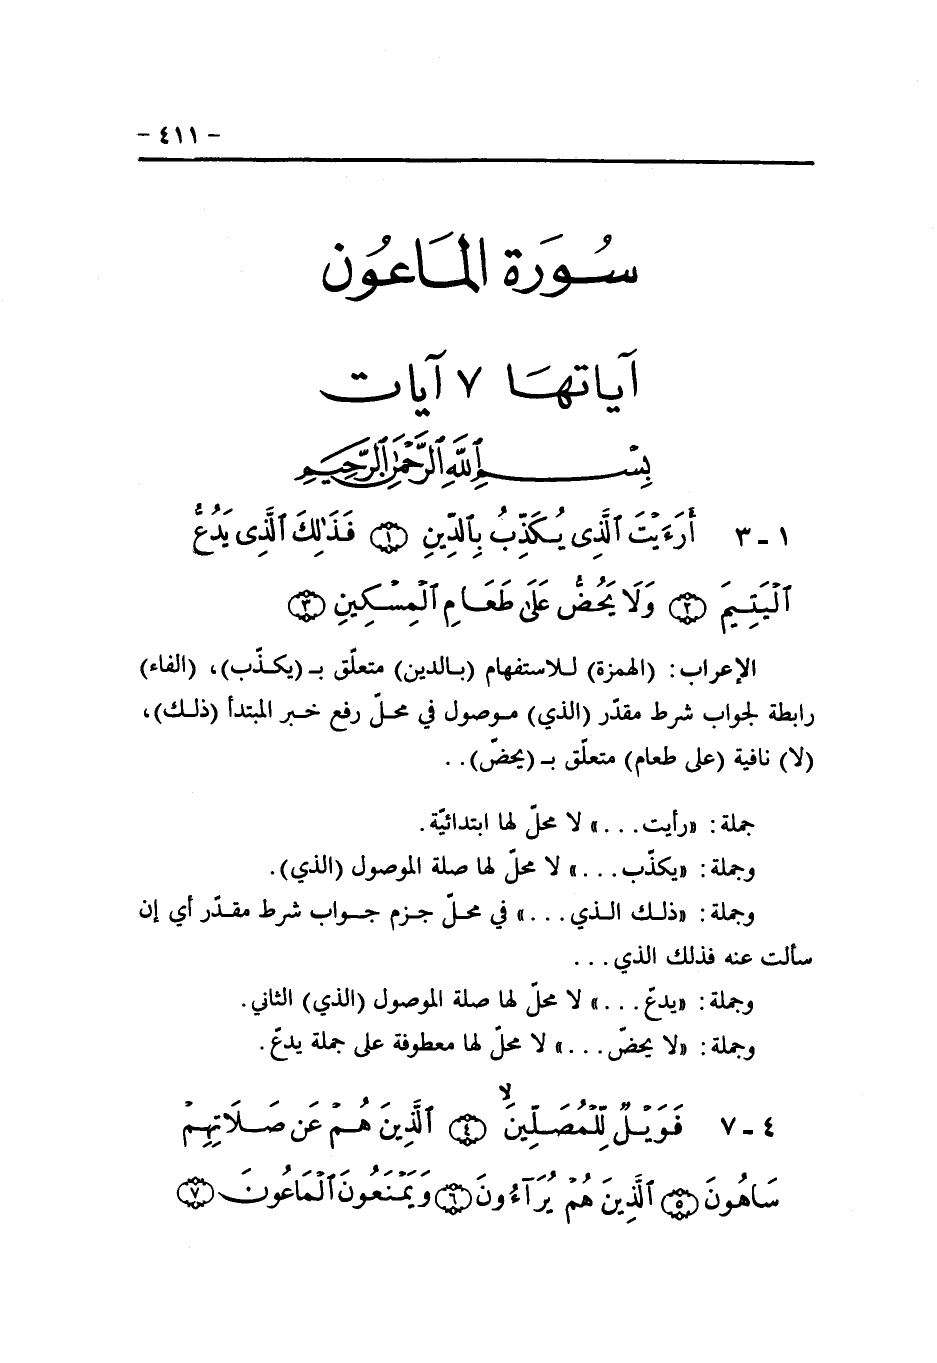 - ٤١١ -
سُورَة المَاعُون
آياتهَا ٧ آيات
بِسْمِ ٱللَّهِ ٱلرَّحْمَٰنِ ٱلرَّحِيمِ
١ - ٣ أَرَءَيْتَ ٱلَّذِى يُكَذِّبُ بِٱلدِّينِ ١ فَذَٰلِكَ ٱلَّذِى يَدُعُّ
ٱلْيَتِيمَ ٢ وَلَا يَحُضُّ عَلَىٰ طَعَامِ ٱلْمِسْكِينِ ٣
الإعراب: (الهمزة) للاستفهام (بالدين) متعلّق بـ (يكذّب)، (الفاء)
رابطة لجواب شرط مقدّر (الذي) موصول في محلّ رفع خبر المبتدأ (ذلك)،
(لا) نافية (على طعام) متعلّق بـ (يحضّ)..
جملة: «رأيت...» لا محلّ لها ابتدائيّة.
وجملة: «يكذّب...» لا محلّ لها صلة الموصول (الذي).
وجملة: «ذلك الذي...» في محلّ جزم جواب شرط مقدّر أي إن
سألت عنه فذلك الذي...
وجملة: «يدعّ...» لا محلّ لها صلة الموصول (الذي) الثاني.
وجملة: «لا يحضّ...» لا محلّ لها معطوفة على جملة يدعّ.
٤ - ٧ فَوَيْلٌ لِّلْمُصَلِّينَ ۙ ٤ ٱلَّذِينَ هُمْ عَن صَلَاتِهِمْ
سَاهُونَ ٥ ٱلَّذِينَ هُمْ يُرَآءُونَ ٦ وَيَمْنَعُونَ ٱلْمَاعُونَ ٧